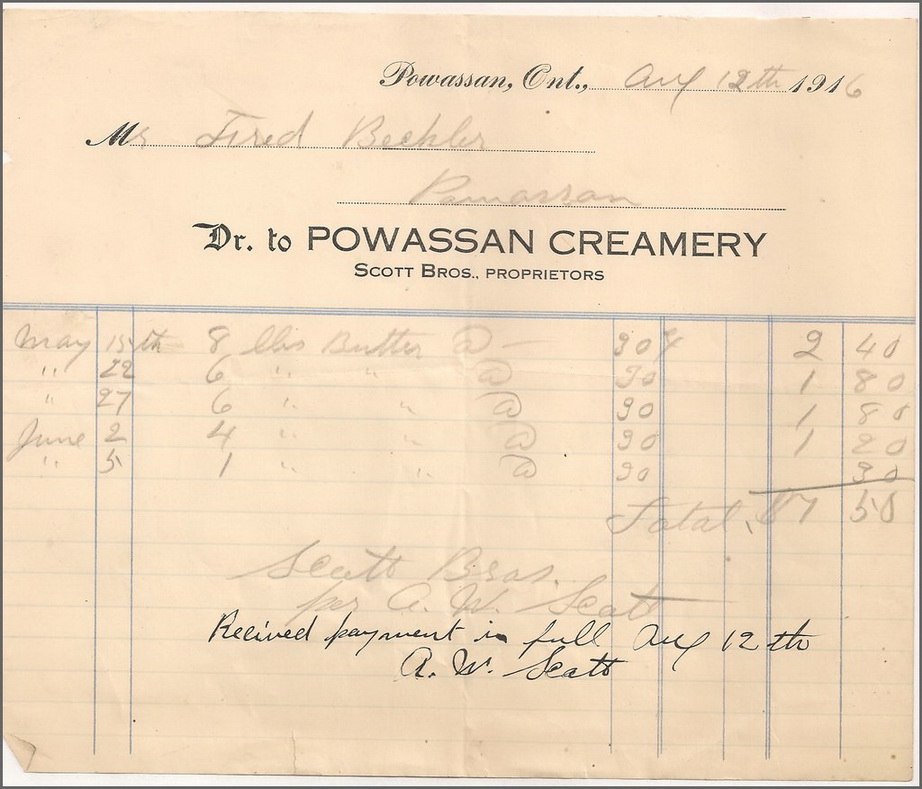 Powassan, Ont., Aug 12th 1916
Mr Fred Beckler
Powassan
Dr. to POWASSAN CREAMERY
SCOTT BROS., PROPRIETORS
May 15th 8 lbs Butter @ — 30¢ 2 40
" 22 6 " " @ 30 1 80
" 27 6 " " @ 30 1 80
June 2 4 " " @ 30 1 20
" 5 1 " " @ 30 30
Total. $7 50
Scott Bros.
per A. W. Scott
Received payment in full Aug 12th
A. W. Scott